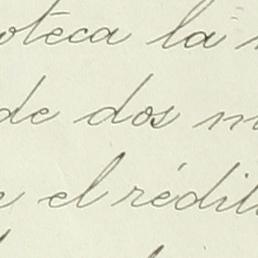 oteca la
de dos m
e el rédit